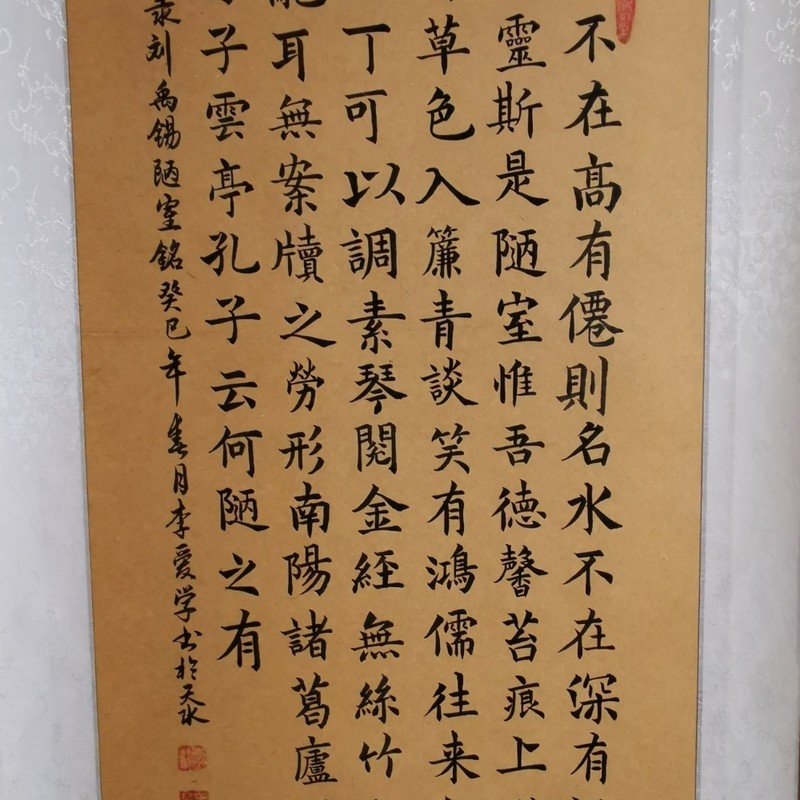 不在高有僊則名水不在深有
靈斯是陋室惟吾德馨苔痕上
草色入簾青談笑有鴻儒往来
丁可以調素琴閱金經無絲竹
亂耳無案牘之勞形南陽諸葛廬
子雲亭孔子云何陋之有
录刘禹锡陋室銘癸巳年春月李爱学书於天水